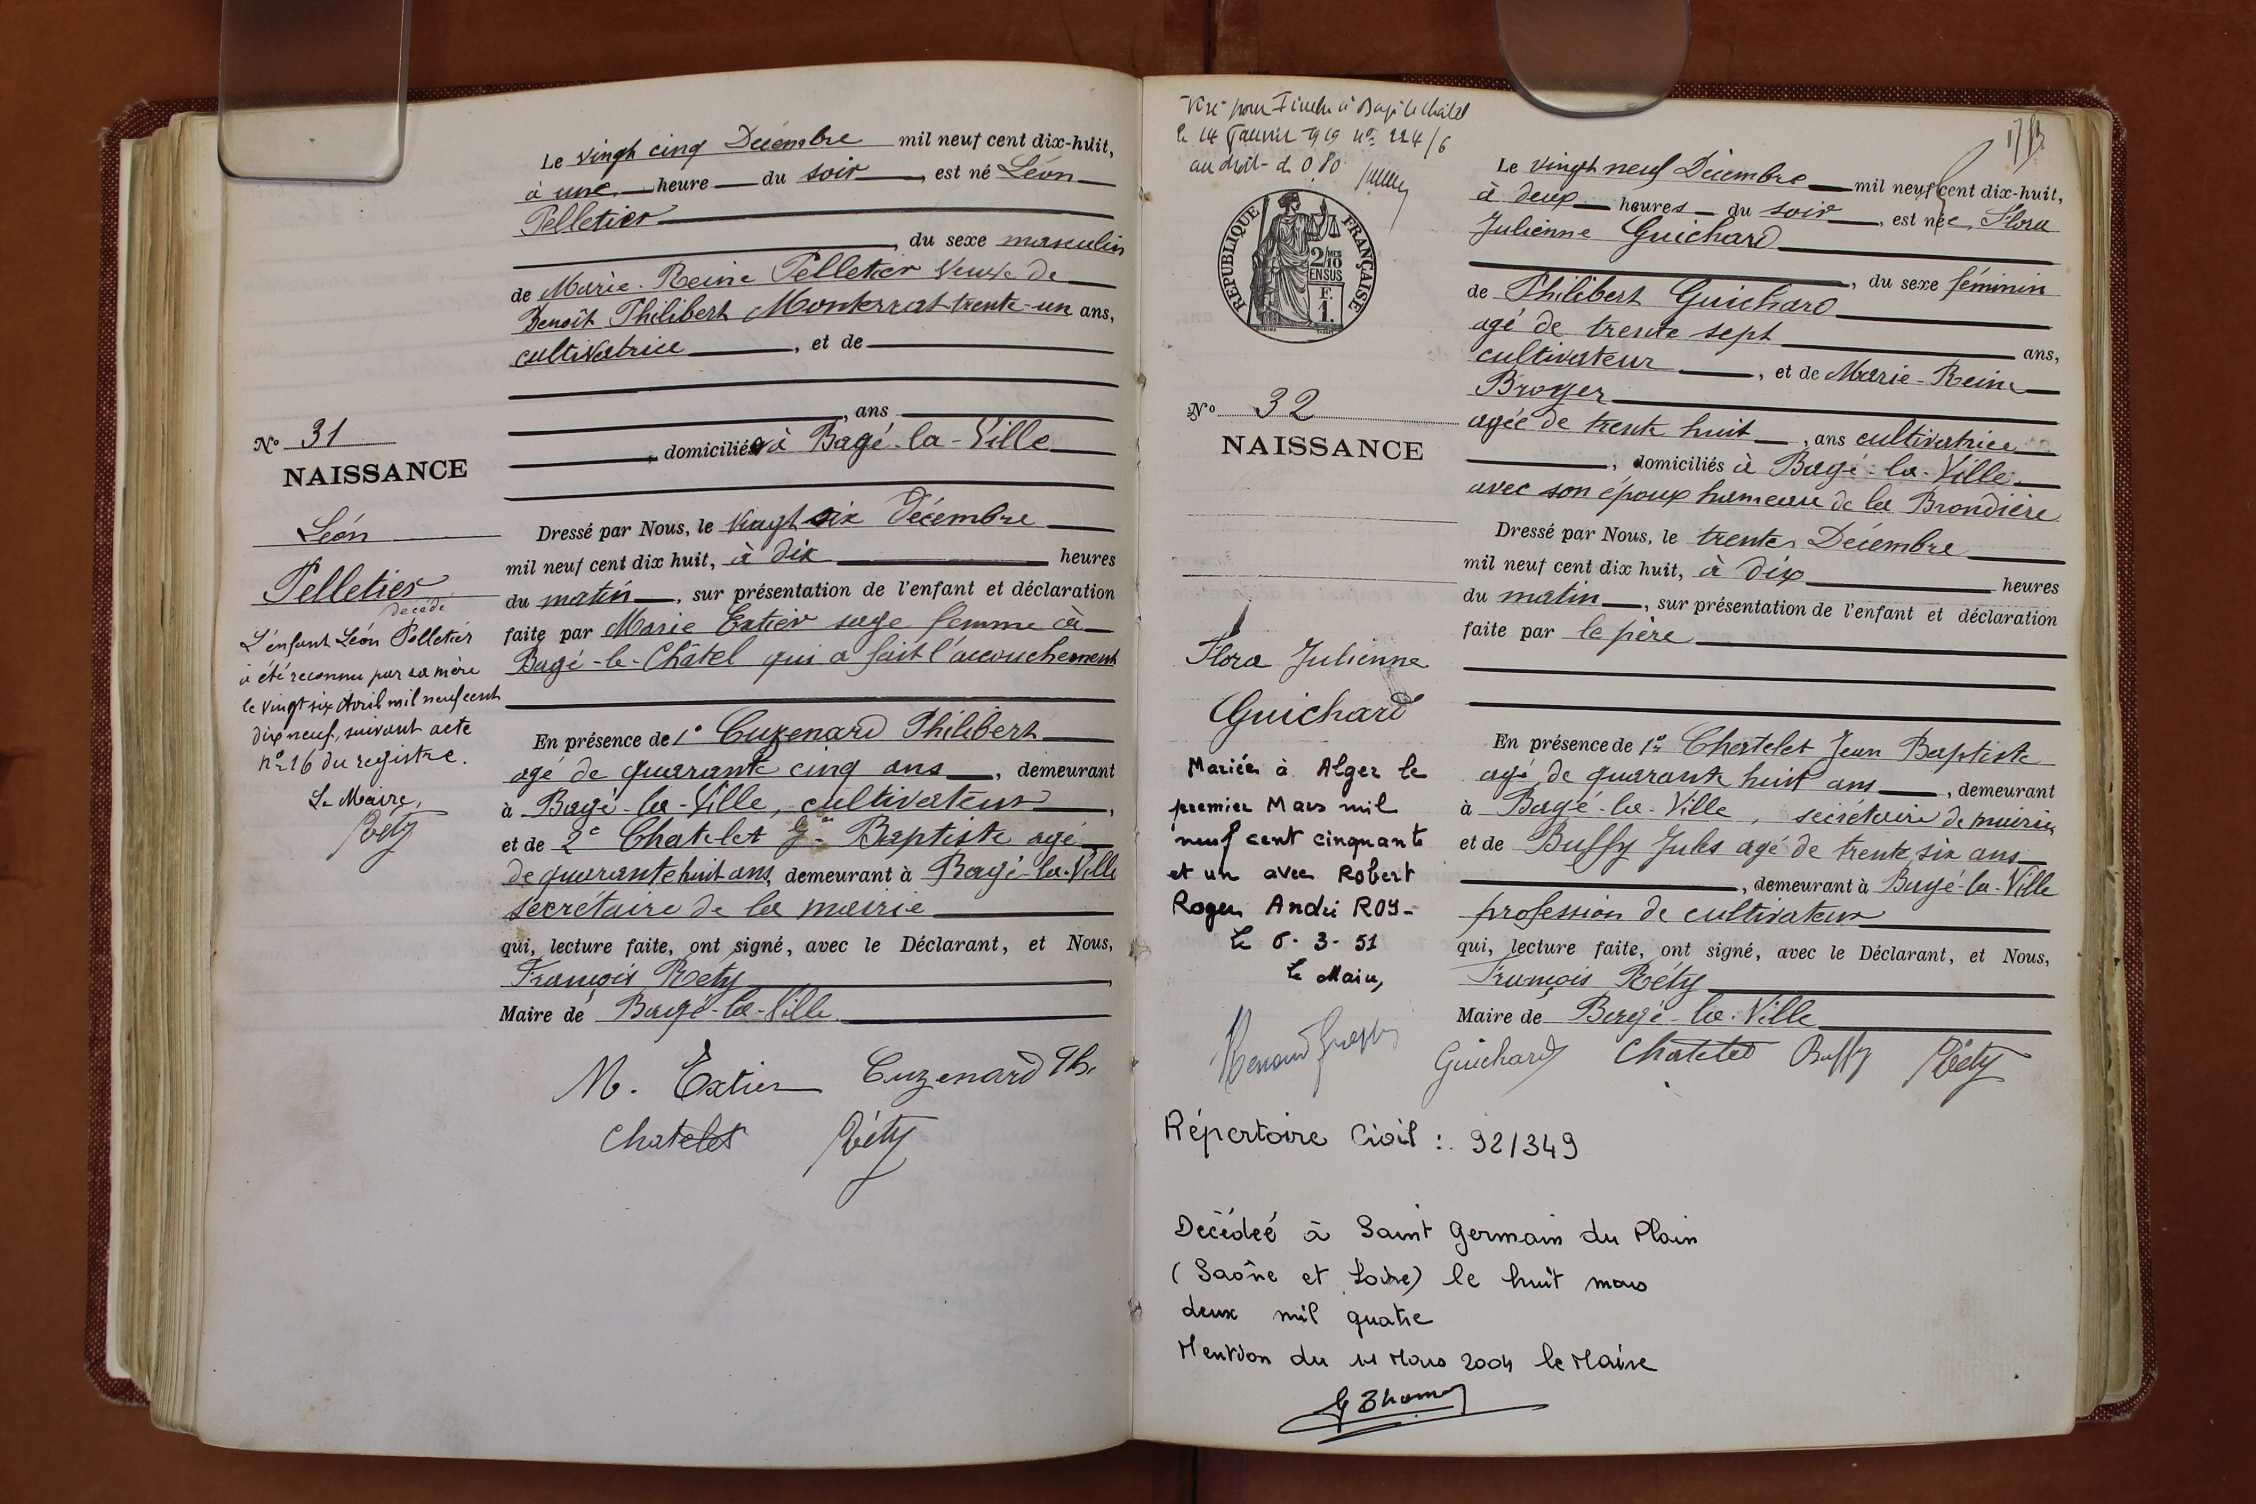 Le vingt cinq Décembre mil neuf cent dix-huit,
à une heure du soir, est né Léon
Pelletier
, du sexe masculin
de Marie-Reine Pelletier veuve de
Benoît Philibert Monterrat trente-un ans,
cultivatrice, et de
, ans
, domiciliée à Bagé-la-Ville
No 31
NAISSANCE
Léon
Pelletier
décédé
L'enfant Léon Pelletier
à été reconnu par sa mère
le vingt six Avril mil neuf cent
dix neuf, suivant acte
no 16 du registre.
Le Maire,
Réty
Dressé par Nous, le vingt six Décembre
mil neuf cent dix huit, à dix heures
du matin, sur présentation de l'enfant et déclaration
faite par Marie Extier sage femme à
Bagé-le-Châtel qui a fait l'accouchement
En présence de 1o Cuzenard Philibert
agé de quarante cinq ans, demeurant
à Bagé-la-Ville, cultivateur,
et de 2e Chatelet Jn Baptiste agé
de quarante huit ans, demeurant à Bagé-la-Ville
secrétaire de la mairie
qui, lecture faite, ont signé, avec le Déclarant, et Nous,
François Réty
Maire de Bagé-la-Ville.
M. Extier Cuzenard Ph.
Chatelet Réty
Visé pour Timbre à Bagé le Châtel
le 14 Janvier 1919 no 224/6
au droit de 0,80
RÉPUBLIQUE FRANÇAISE
2/10
EN SUS
F.
1.
No 32
NAISSANCE
Flora Julienne
Guichard
Mariée à Alger le
premier Mars mil
neuf cent cinquante
et un avec Robert
Roger André ROY-
Le 6-3-51
Le Maire,
Le vingt neuf Décembre mil neuf cent dix-huit,
à deux heures du soir, est née Flora
Julienne Guichard
, du sexe féminin
de Philibert Guichard
agé de trente sept ans,
cultivateur, et de Marie-Reine
Broyer
agée de trente huit, ans cultivatrice
, domiciliés à Bagé-la-Ville
avec son époux hameau de la Brondière
Dressé par Nous, le trente Décembre
mil neuf cent dix huit, à dix heures
du matin, sur présentation de l'enfant et déclaration
faite par le père
En présence de 1o Chatelet Jean Baptiste
agé de quarante huit ans, demeurant
à Bagé-la-Ville, secrétaire de mairie
et de Buffy Jules agé de trente six ans
, demeurant à Bagé-la-Ville
profession de cultivateur
qui, lecture faite, ont signé, avec le Déclarant, et Nous,
François Réty
Maire de Bagé-la-Ville
Guichard Chatelet Buffy Réty
Répertoire Civil : 92/349
Décédée à Saint Germain du Plain
(Saône et Loire) le huit mars
deux mil quatre
Mention du 11 Mars 2004 le Maire